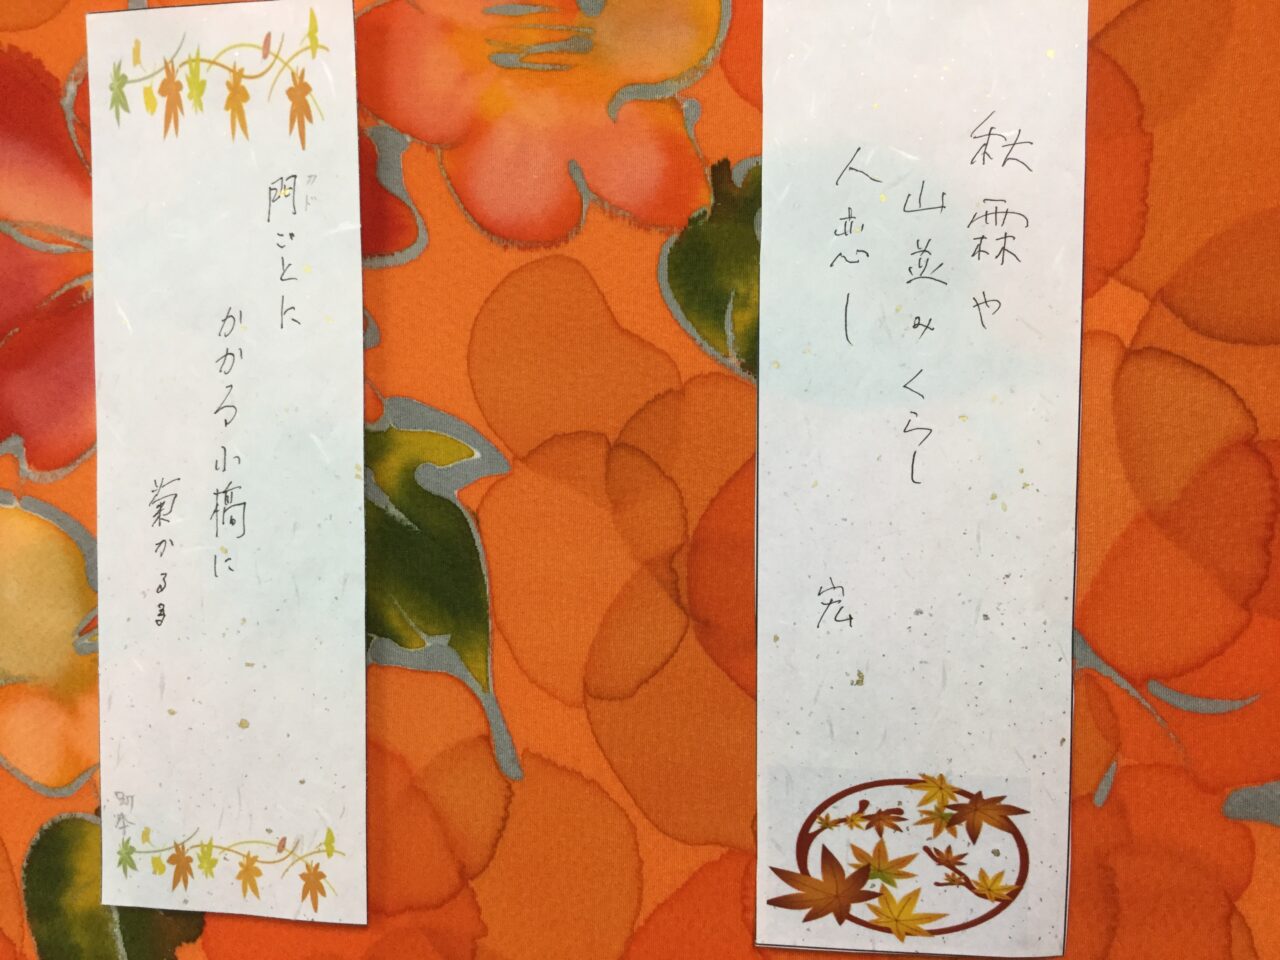 秋霖や
山並みくらし
人恋し
宏
カド
門ごとに
かかる小橋に
菊かるる